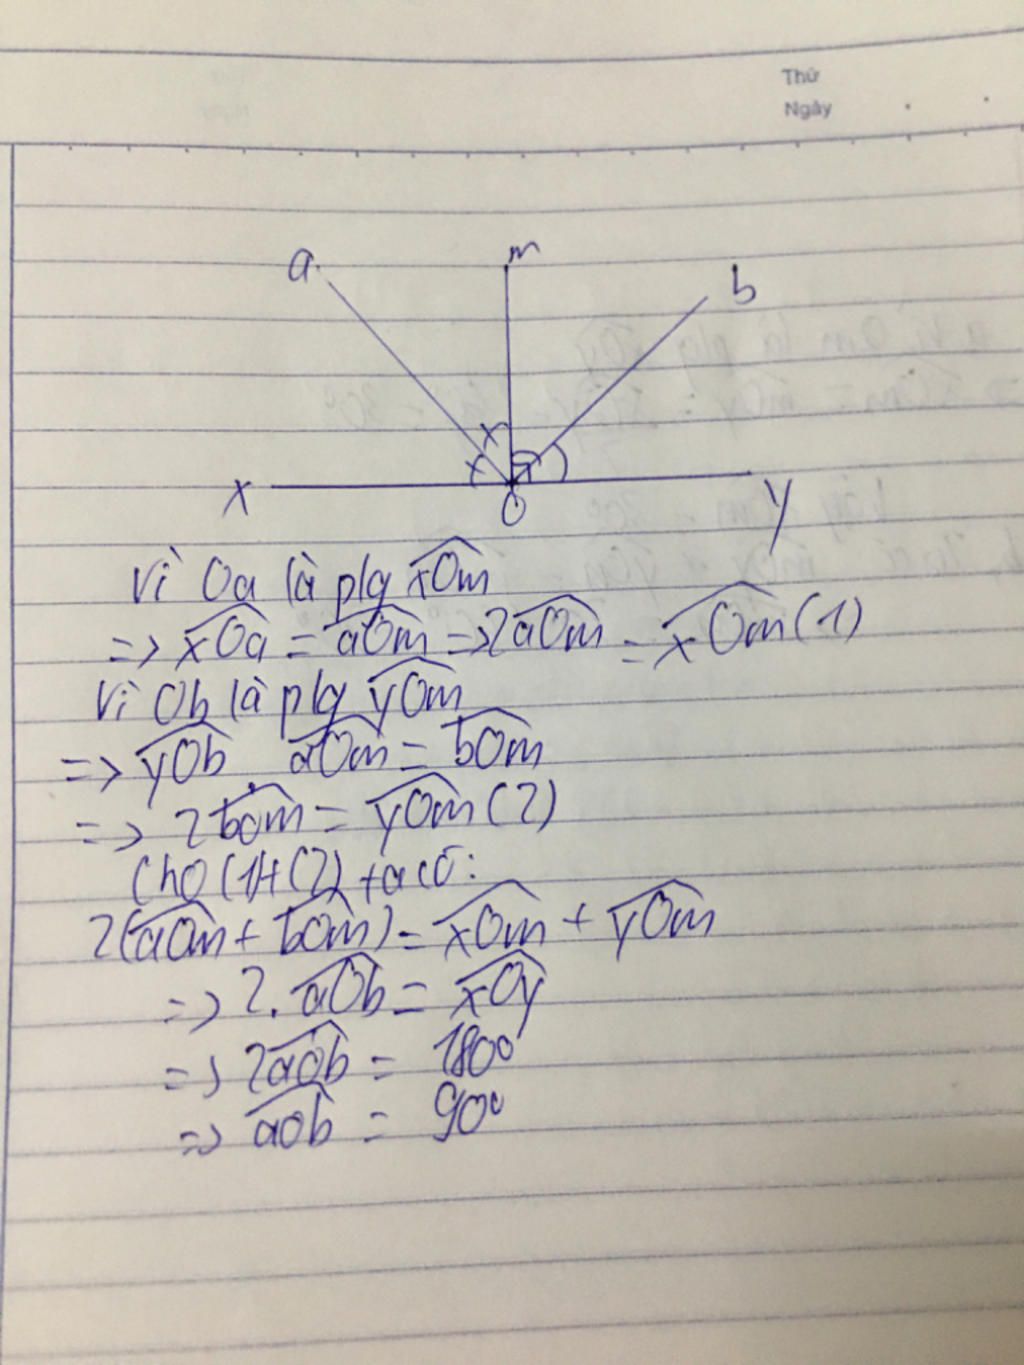 Thứ
Ngày
a m b
x x
x O y
Vì Oa là plg xOm
=> xOa = aOm => 2aOm = xOm (1)
Vì Ob là plg yOm
=> yOb aOm = bOm
=> 2bOm = yOm (2)
Cho (1)+(2) ta có:
2(aOm + bOm) = xOm + yOm
=> 2. aOb = xOy
=> 2aOb = 180°
=> aOb = 90°